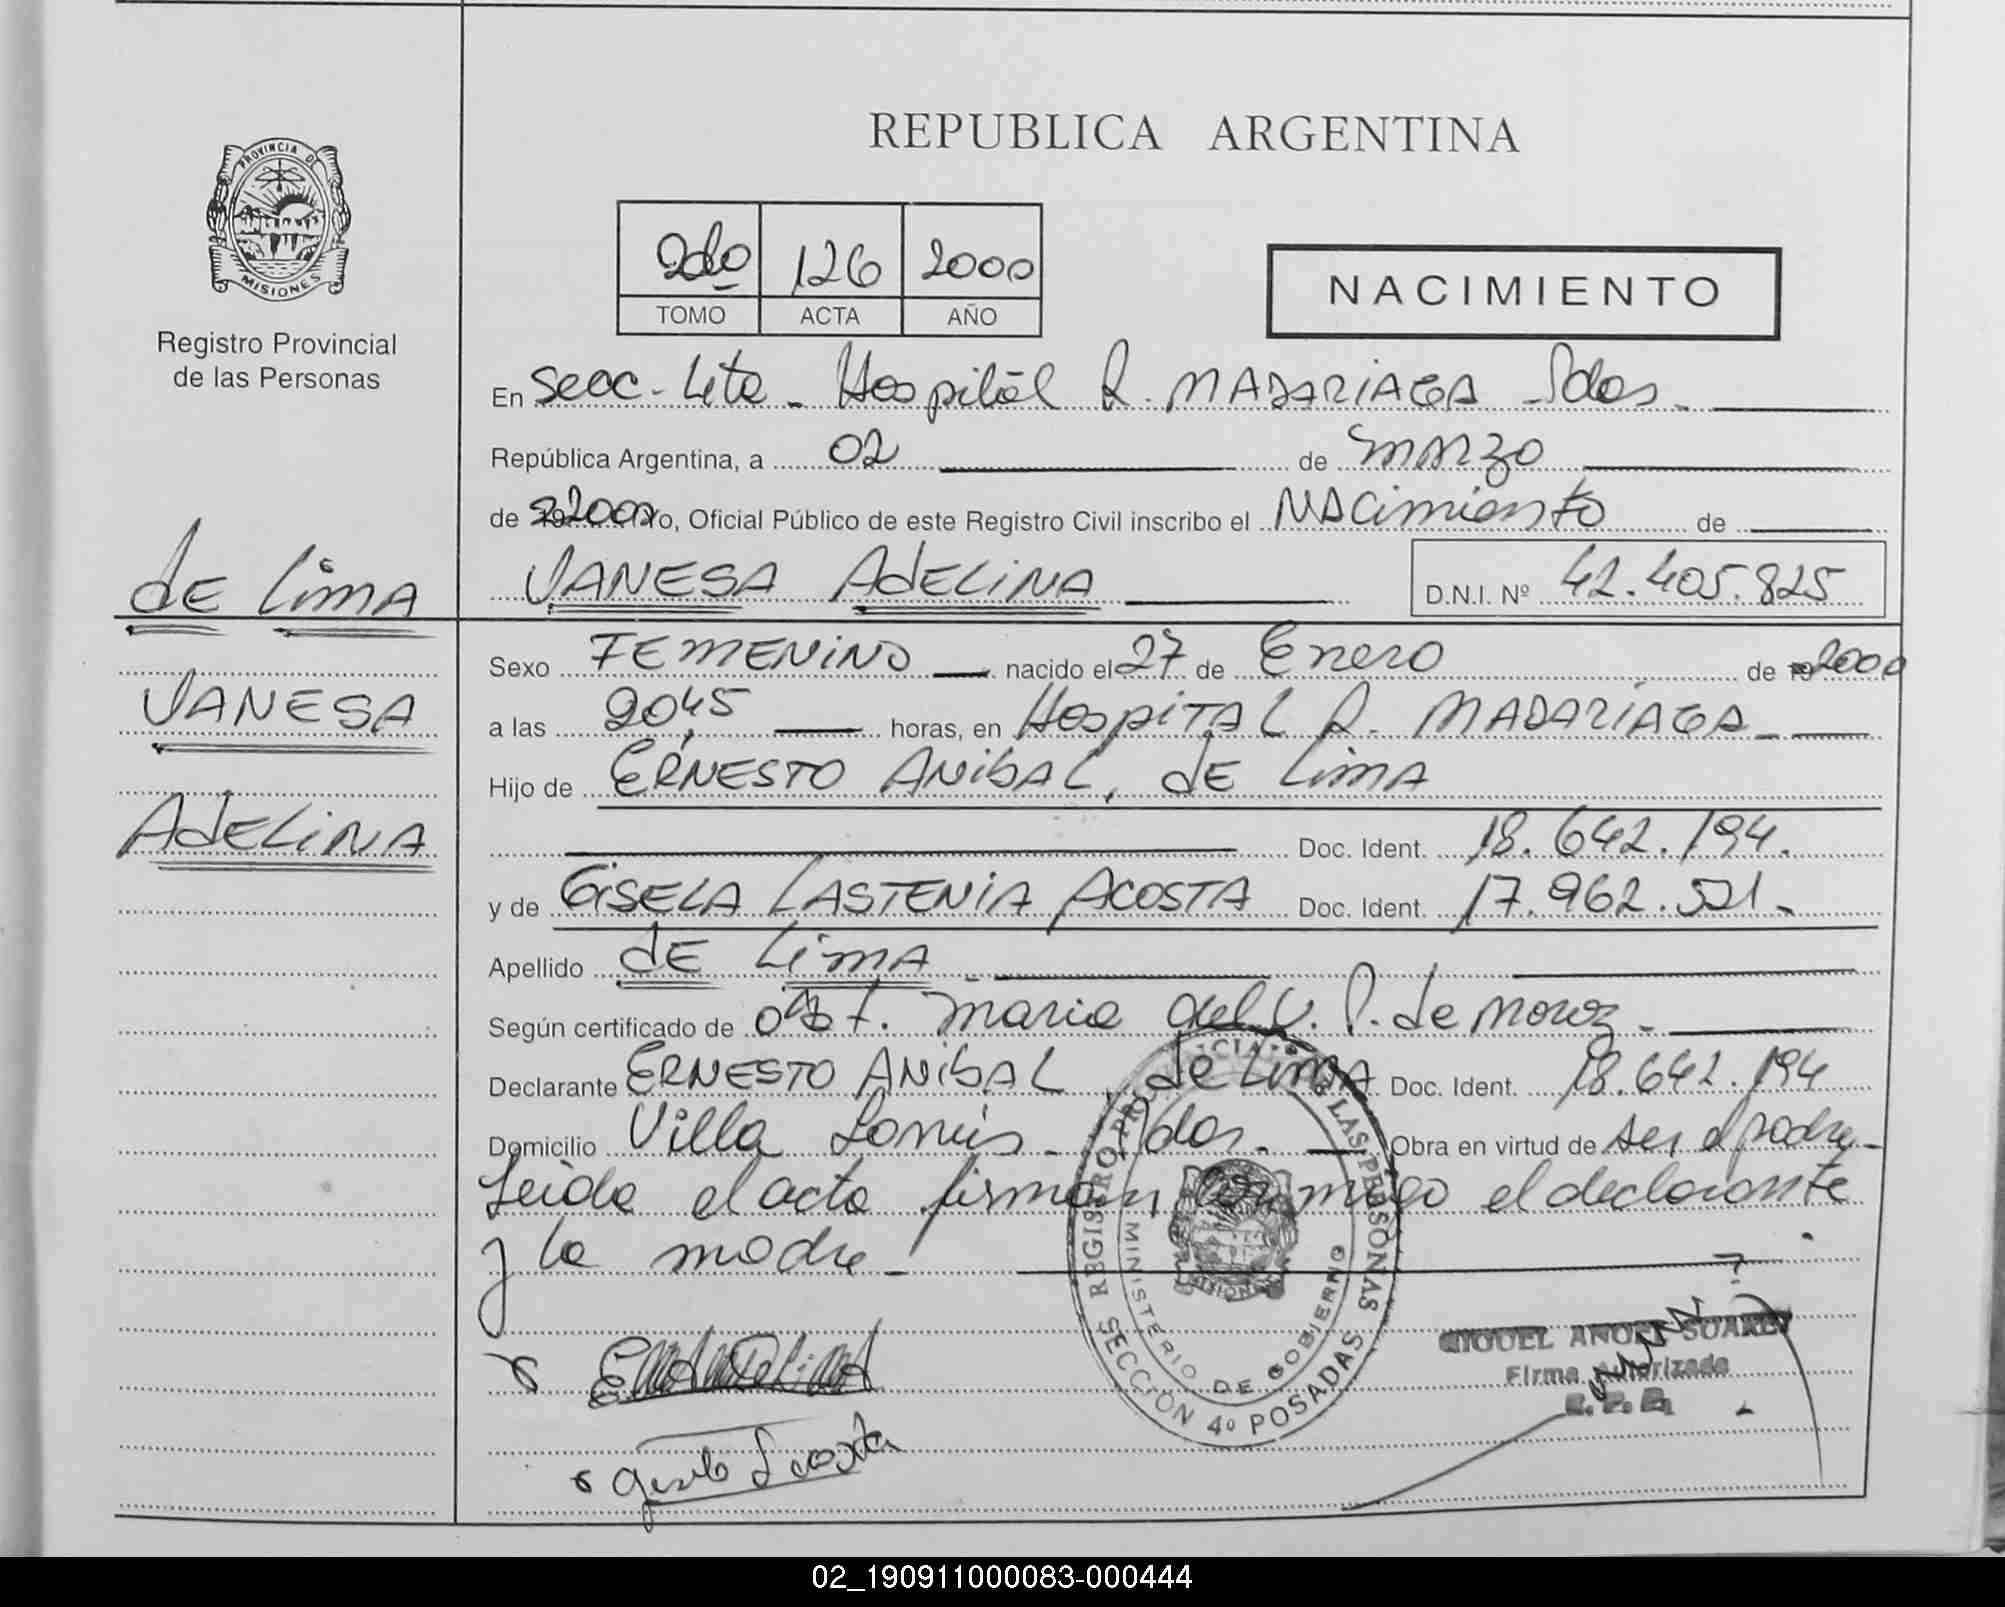 REPUBLICA ARGENTINA
PROVINCIA DE
MISIONES
Registro Provincial
de las Personas
2do 126 2000
TOMO ACTA AÑO
NACIMIENTO
En Secc. 4ta. Hospital R. MADARIAGA Pdas.
República Argentina, a 02 de MARZO
de 2000 Yo, Oficial Público de este Registro Civil inscribo el NACimiento de
VANESA ADELINA D.N.I. Nº 42.405.825
de Lima
VANESA
ADELINA
Sexo FEMENINO nacido el 27 de Enero de 2000
a las 20,45 horas, en HOSPITAL R. MADARIAGA
Hijo de ERNESTO ANIBAL, de Lima
Doc. Ident. 18.642.194.
y de GISELA LASTENIA ACOSTA Doc. Ident. 17.962.521.
Apellido de Lima
Según certificado de Obst. Maria del C. P. de
Declarante ERNESTO ANIBAL de Lima Doc. Ident. 18.642.194
Domicilio Villa Lanús - Pdas. Obra en virtud de ser el padre
Leida el acta firman conmigo el declarante
y la madre
REGISTRO PROVINCIAL DE LAS PERSONAS
MINISTERIO DE GOBIERNO
SECCIÓN 4º POSADAS
MIGUEL ANGEL SUAREZ
Firma Autorizada
02_190911000083-000444